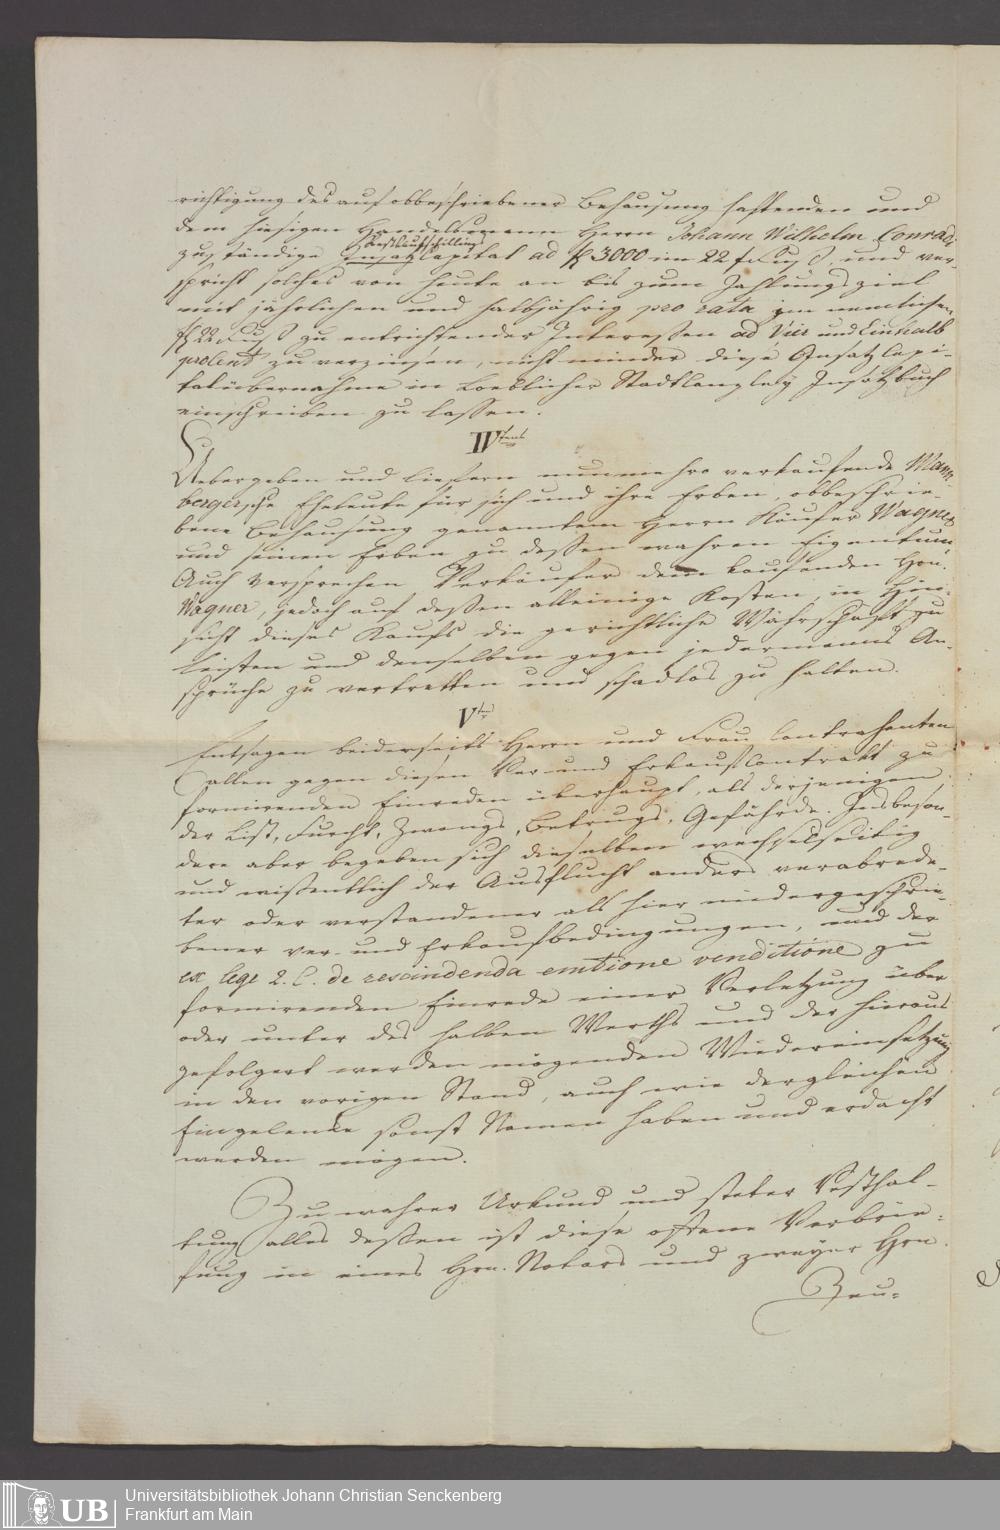 richtigung des auf obbeschriebener Behausung haftenden und
dem hiesigen Handelsmann Herrn Johann Wilhelm Conradi
Restkaufschillings
zuständige Insatzcapital ad f 3000 im 22 f. Fuß, und ver-
spricht solches von heute an bis zum Zahlungsziel
mit jährlichen und halbjährig pro rata im nemlichen
f 22 Fuß zu entrichtender Interessen ad Vier und Einhalb
procent zu verzinsen, nicht minder diese Insatzcapi-
talübernahme in Loeblicher Stadtcanzley Insatzbuch
einschreiben zu lassen.
IVtens
Uebergeben und liefern nunmehro verkaufende
bergersche Eheleute für sich und ihre Erben, obbeschrie-
bene Behausung genanntem Herrn Käufer Wagner
und seinen Erben zu dessen wahren Eigentum,
Auch versprechen Verkäufer dem kaufenden Hrn.
Wagner, jedoch auf dessen alleinige Kosten, in Hin-
sicht dieses Kaufs die gerichtliche Währschaft zu
leisten und denselben gegen jedermanns An-
sprüche zu vertretten und schadlos zu halten.
Vtens
Entsagen beiderseits Herrn und Frau Contrahenten
allen gegen diesen Ver- und Erkaufcontrakt zu
formirenden Einreden überhaupt, als derjenigen
der List, Furcht, Zwangs, Betrugs, Gefährde. Insbeson-
dere aber begeben sich dieselben wechselseitig
und wissentlich der Ausflucht anders verabrede-
ter oder verstandener als hier niedergeschrie-
bener Ver- und Erkaufbedingungen, und der
ex lege 2. C. de rescindenda emtione venditione zu
formirenden Einrede einer Verletzung über
oder unter des halben Werths und der hieraus
gefolgert werden mögenden Wiedereinsetzung
in den vorigen Stand, auch wie dergleichen
sonst Namen haben und erdacht
werden mögen.
Zu wahrer Urkund und steter Vesthal-
tung alles dessen ist diese offene Verbrie-
fung in eines Hrn. Notars und zweyer Hrn.
Zeu-
UB
Universitätsbibliothek Johann Christian Senckenberg
Frankfurt am Main